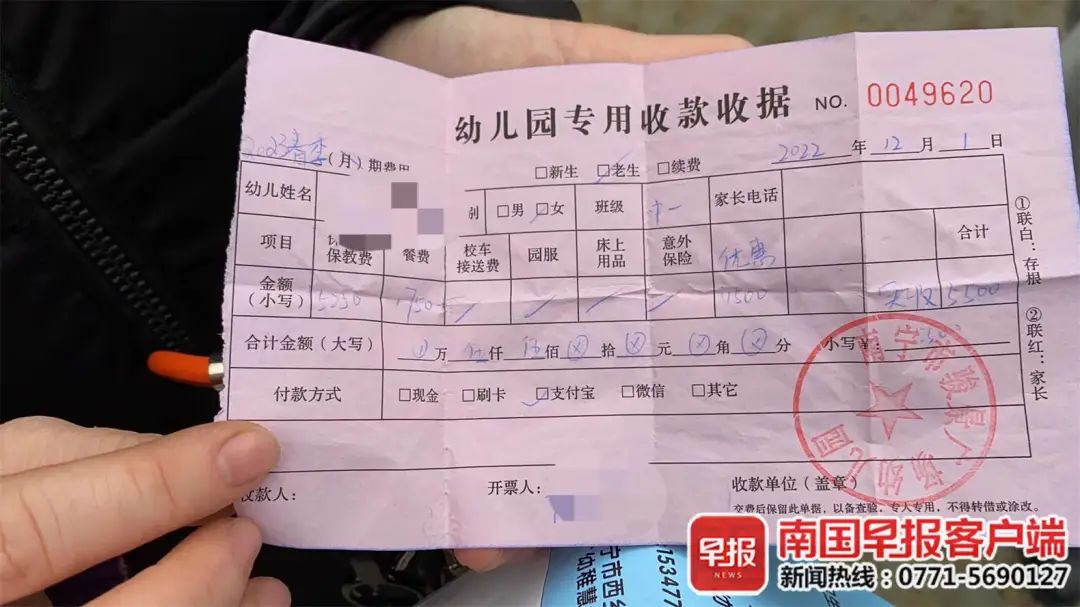 幼儿园专用收款收据 NO. 0049620
2023春季（月）期费用 □新生 □老生 □续费 2022 年 12 月 1 日
幼儿姓名 别 □男 □女 班级 家长电话
项目 保教费 餐费 校车接送费 园服 床上用品 意外保险 优惠 合计
金额（小写） 5250 1750 1500 实收 5500
合计金额（大写） 万 伍仟 伍佰 拾 元 角 分 小写￥：
付款方式 □现金 □刷卡 □支付宝 □微信 □其它
收款人： 开票人： 收款单位（盖章）
交费后保留此单据，以备查验，专人专用，不得转借或涂改。
①联白：存根 ②联红：家长
南宁市 广场幼儿园
15347
宁市西
早报 NEWS
南国早报客户端
新闻热线：0771-5690127